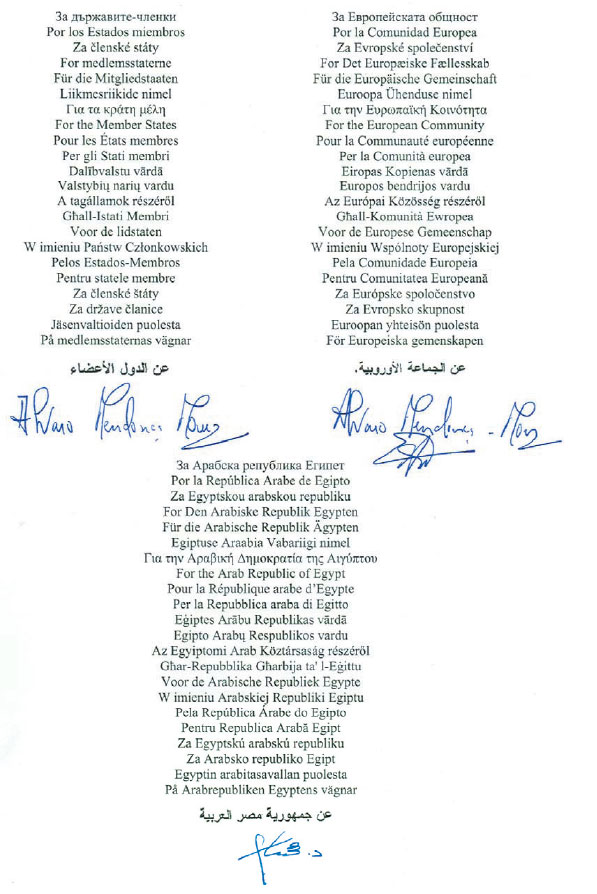 За държавите-членки
Por los Estados miembros
Za členské státy
For medlemsstaterne
Für die Mitgliedstaaten
Liikmesriikide nimel
Για τα κράτη μέλη
For the Member States
Pour les États membres
Per gli Stati membri
Dalībvalstu vārdā
Valstybių narių vardu
A tagállamok részéről
Għall-Istati Membri
Voor de lidstaten
W imieniu Państw Członkowskich
Pelos Estados-Membros
Pentru statele membre
Za členské štáty
Za države članice
Jäsenvaltioiden puolesta
På medlemsstaternas vägnar
عن الدول الأعضاء
Alvaro Mendonça Moura
За Европейската общност
Por la Comunidad Europea
Za Evropské společenství
For Det Europæiske Fællesskab
Für die Europäische Gemeinschaft
Euroopa Ühenduse nimel
Για την Ευρωπαϊκή Κοινότητα
For the European Community
Pour la Communauté européenne
Per la Comunità europea
Eiropas Kopienas vārdā
Europos bendrijos vardu
Az Európai Közösség részéről
Għall-Komunità Ewropea
Voor de Europese Gemeenschap
W imieniu Wspólnoty Europejskiej
Pela Comunidade Europeia
Pentru Comunitatea Europeană
Za Európske spoločenstvo
Za Evropsko skupnost
Euroopan yhteisön puolesta
För Europeiska gemenskapen
عن الجماعة الأوروبية.
Alvaro Mendonça - Moura
За Арабска република Египет
Por la República Arabe de Egipto
Za Egyptskou arabskou republiku
For Den Arabiske Republik Egypten
Für die Arabische Republik Ägypten
Egiptuse Araabia Vabariigi nimel
Για την Αραβική Δημοκρατία της Αιγύπτου
For the Arab Republic of Egypt
Pour la République arabe d'Egypte
Per la Repubblica araba di Egitto
Eġiptes Arābu Republikas vārdā
Egipto Arabų Respublikos vardu
Az Egyiptomi Arab Köztársaság részéről
Għar-Repubblika Għarbija ta' l-Eġittu
Voor de Arabische Republiek Egypte
W imieniu Arabskiej Republiki Egiptu
Pela República Árabe do Egipto
Pentru Republica Arabă Egipt
Za Egyptskú arabskú republiku
Za Arabsko republiko Egipt
Egyptin arabitasavallan puolesta
På Arabrepubliken Egyptens vägnar
عن جمهورية مصر العربية